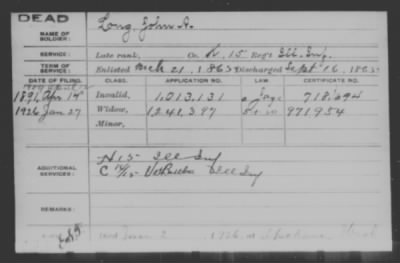 DEAD
NAME OF SOLDIER: Long, John A.
SERVICE: Late rank, Co. H, 15 Reg't Ill. Inf.
TERM OF SERVICE: Enlisted Mch 21, 1865 Discharged Sept 16, 1865
DATE OF FILING. CLASS. APPLICATION NO. LAW. CERTIFICATE NO.
1891, Apr 14 Invalid, 1,013,131 718,694
1926 Jan 27 Widow, 1,241,397 971954
Minor,
ADDITIONAL SERVICES: H 15 Ill Inf
C 14/15 Ill Inf
REMARKS:
Died Jan 2, 1926, at Spokane, Wash